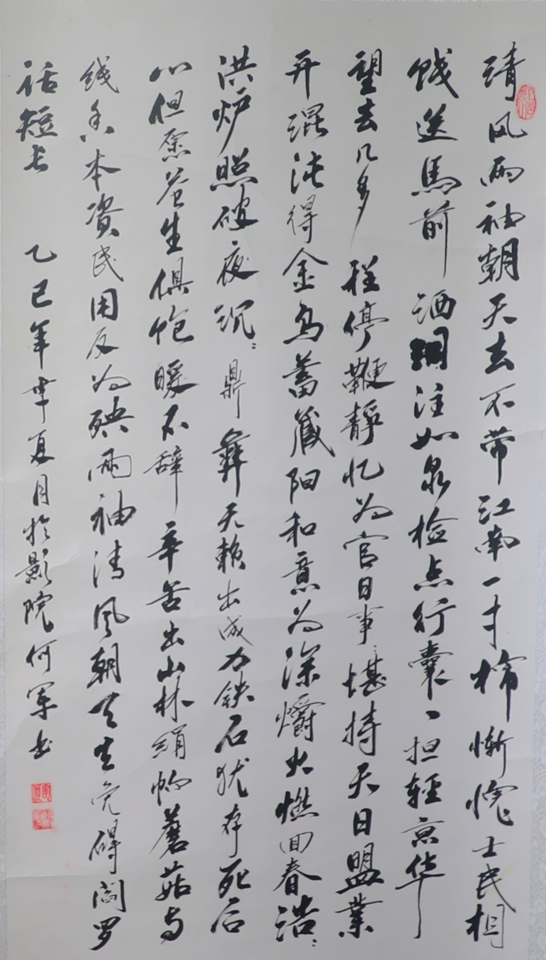 清风两袖朝天去不带江南一寸棉惭愧士民相
饯送马前洒泪注如泉检点行囊一担轻京华
望去几多程停鞭静忆为官日事〻堪持天日盟
开混沌得金乌蓄藏阳和意为深爝火燃回春浩〻
洪炉照破夜沉〻鼎彝元赖出成力铁石犹存死后
心但愿苍生俱饱暖不辞辛苦出山林绢帕蘑菇与
线香本资民用反为殃两袖清风朝天去免得阎罗
话短长 乙巳年季夏月於影院何军书